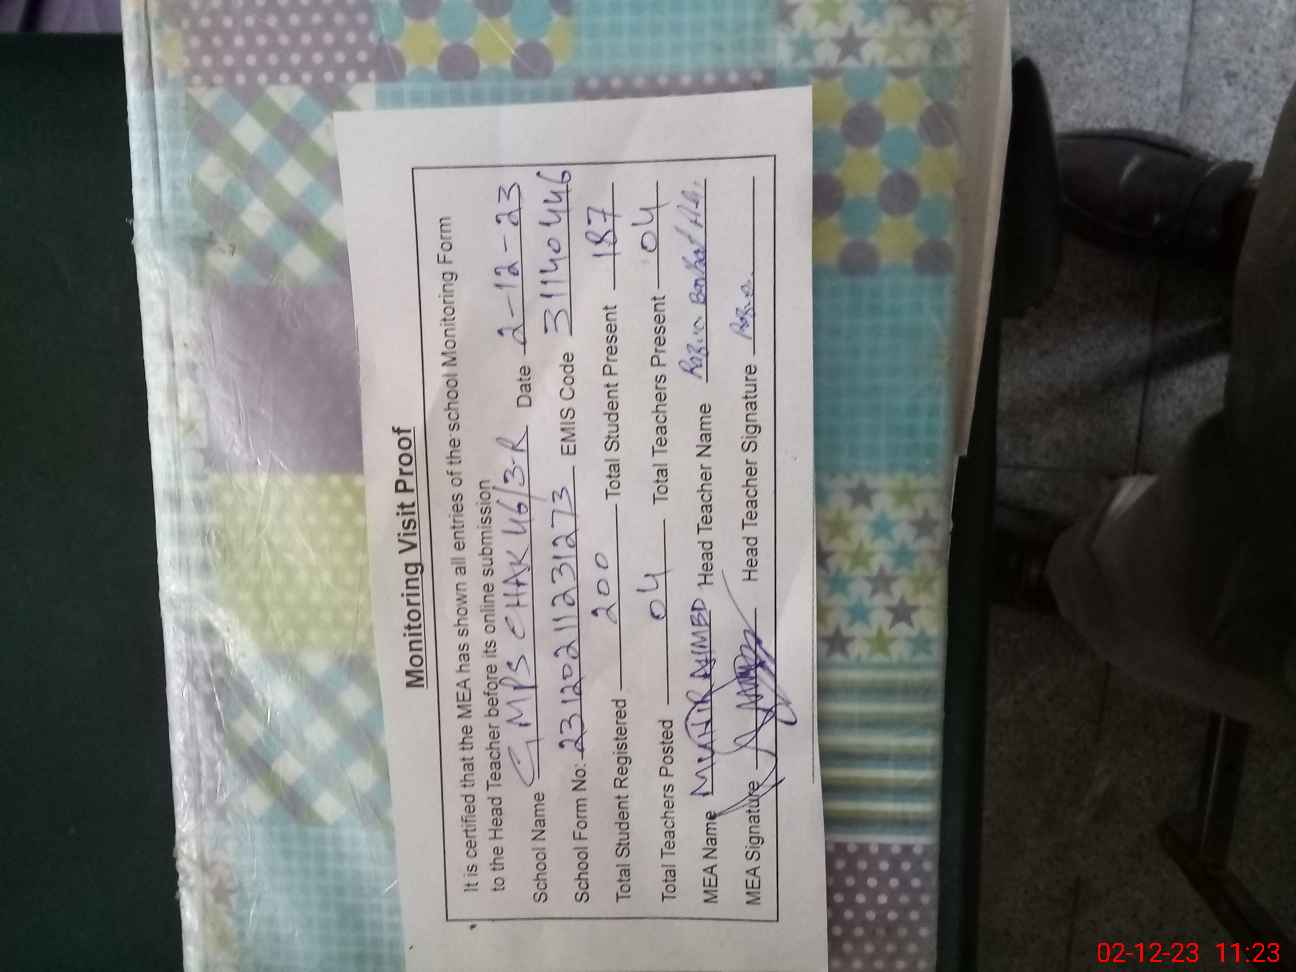 Monitoring Visit Proof
It is certified that the MEA has shown all entries of the school Monitoring Form
to the Head Teacher before its online submission
School Name GMPS CHAK 46/3-R Date 2-12-23
School Form No: 2312021123 1273 EMIS Code 31140446
Total Student Registered 200 Total Student Present 187
Total Teachers Posted 04 Total Teachers Present 04
MEA Name MUNIR AHMED Head Teacher Name
MEA Signature Head Teacher Signature
02-12-23 11:23